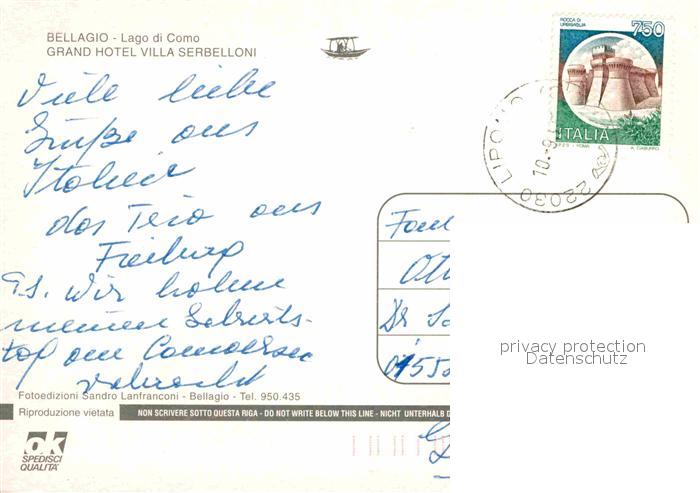 BELLAGIO - Lago di Como
GRAND HOTEL VILLA SERBELLONI
ROCCA DI URBISAGLIA
750
ITALIA
22030 LIPOMO
Viele liebe
Grüße aus
Italien
das Trio aus
Freiburg
P.S. Wir haben
meinen Geburts-
tag am Comersee
verbracht
Fam
Ott
Dr
privacy protection
Datenschutz
Fotoedizioni Sandro Lanfranconi - Bellagio - Tel. 950.435
Riproduzione vietata
NON SCRIVERE SOTTO QUESTA RIGA - DO NOT WRITE BELOW THIS LINE - NICHT UNTERHALB D
ok
SPEDISCI
QUALITA'